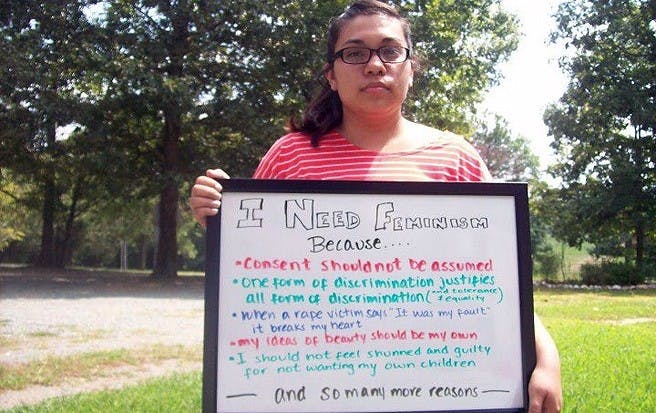 I NEED FEMINISM
Because....
• Consent should not be assumed
• One form of discrimination justifies
all form of discrimination (and tolerance & equality)
• When a rape victim says "It was my fault"
it breaks my heart
• my ideas of beauty should be my own
• I should not feel shunned and guilty
for not wanting my own children
— and so many more reasons —